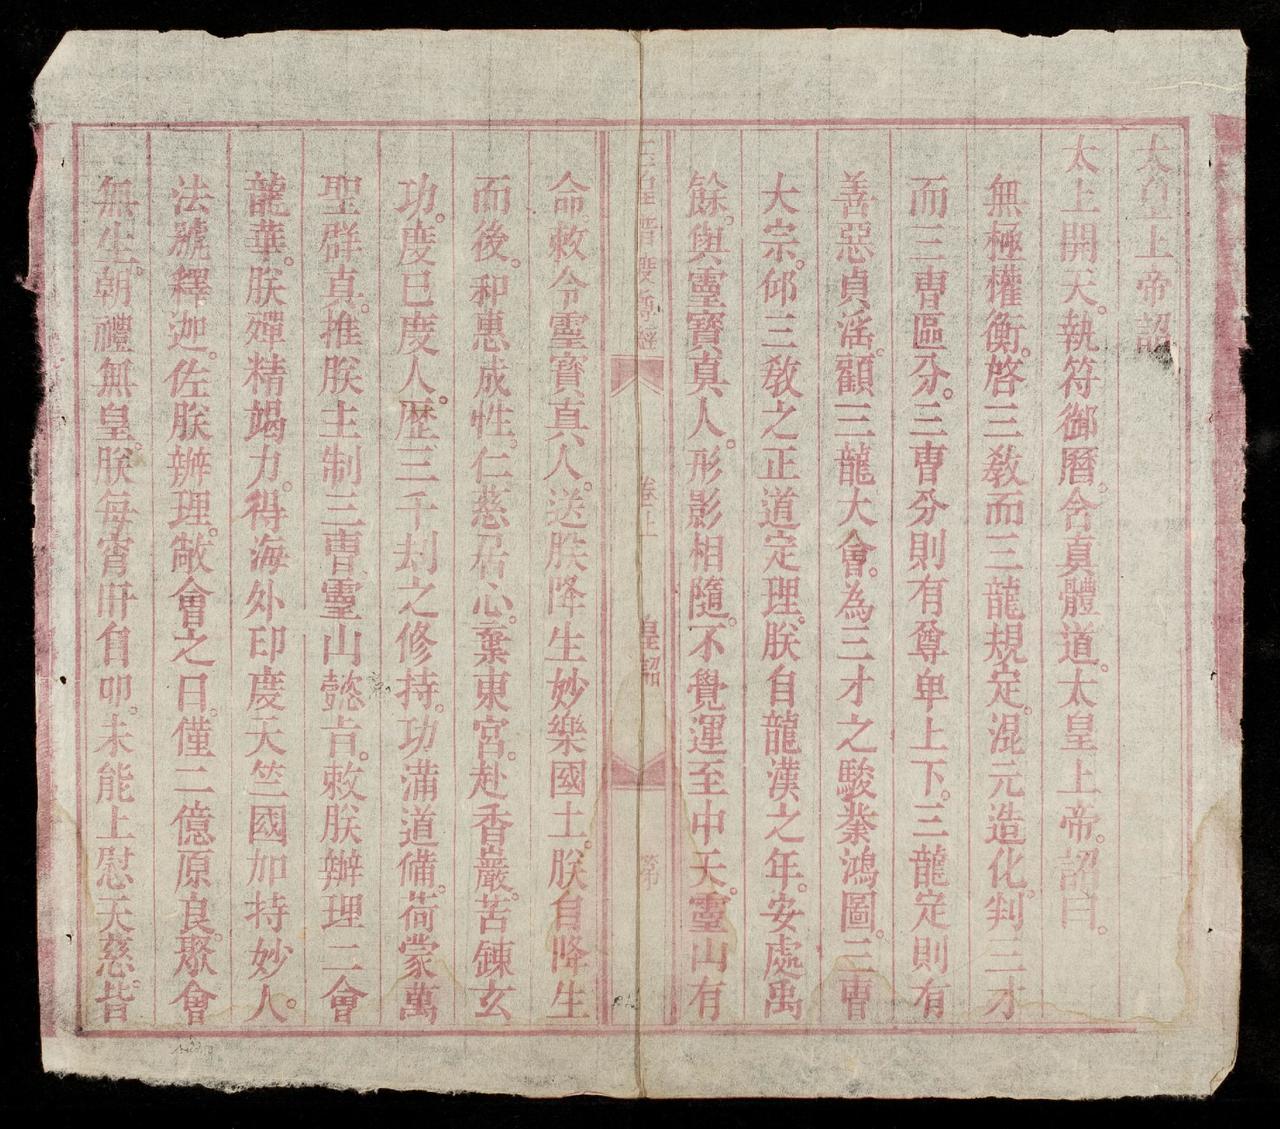 太皇上帝詔
太上開天。執符御曆。含真體道。太皇上帝。詔曰。
無極權衡。啓三教而三龍規定。混元造化。判三才
而三曹區分。三曹分則有尊卑上下。三龍定則有
善惡貞淫。顧三龍大會。為三才之駿業鴻圖。三曹
大宗。仰三教之正道定理。朕自龍漢之年。安處禹
餘。與靈寶真人。形影相隨。不覺運至中天。靈山有
皇詔
命。敕令靈寶真人。送朕降生妙樂國土。朕自降生
而後。和惠成性。仁慈居心。棄東宮。赴香巖。苦鍊玄
功。度已度人。歷三千刦之修持。功滿道備。荷蒙萬
聖群真。推朕主制三曹。靈山懿吉。敕朕辦理二會
龍華。朕殫精竭力。得海外印度天竺國加持妙人。
法號釋迦。佐朕辦理。敞會之日。僅二億原良。聚會
無生。朝禮無皇。朕每宵旰自卹。未能上慰天慈。皆